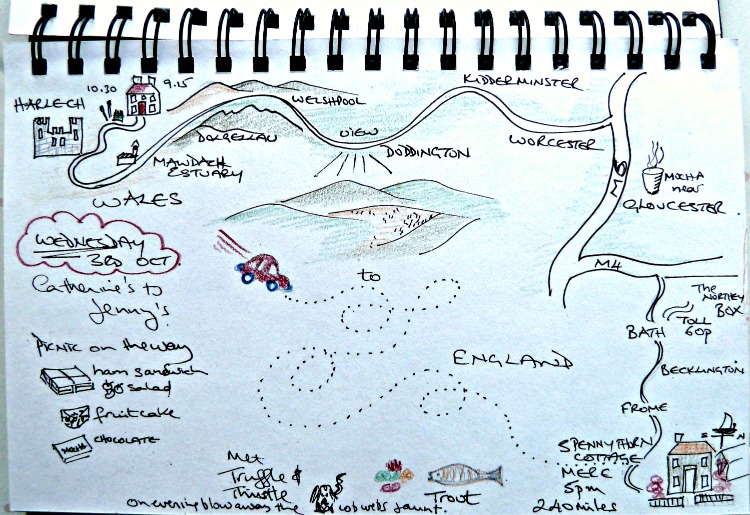 10.30
9.15
HARLECH
DOLGELLAU
MAWDACH
ESTUARY
WALES
WELSHPOOL
VIEW
DODDINGTON
KIDDERMINSTER
WORCESTER
M6
MOCHA
near
GLOUCESTER
M4
The
NORTHEY
BOX
TOLL
60p
BATH
BECKLINGTON
FROME
WEDNESDAY
3RD OCT
Catherine's to
Jenny's
to
ENGLAND
PICNIC on the way
ham sandwich
salad
fruitcake
MOCHA
CHOCOLATE
SPENNYTHORN
COTTAGE
MERE
5pm
240 miles
S N
Met
Truffle &
Thistle
on evening blow away the
cobwebs jaunt.
Trout